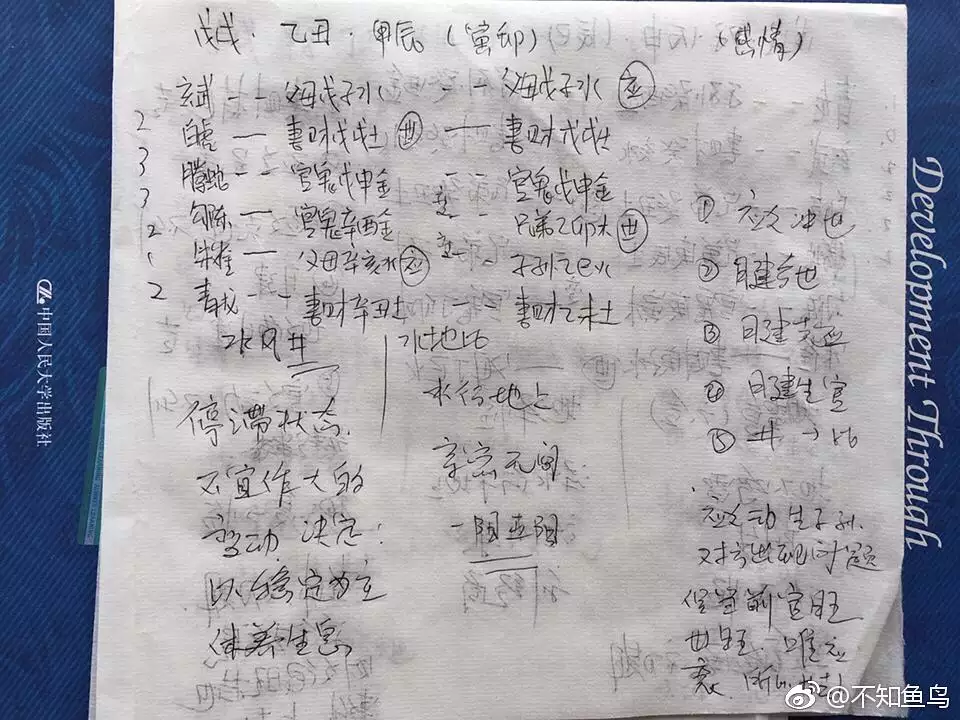 戊戌·乙丑·甲辰（寅卯） （感情）
玄武 -- 父母戊子水 -- 父母戊子水 应
2 白虎 — 妻财戊戌土 世 — 妻财戊戌土
3 腾蛇 -- 官鬼戊申金 -- 官鬼戊申金
3 勾陈 — 官鬼辛酉金 -- 兄弟乙卯木 世
2 朱雀 — 父母辛亥水 应 -- 子孙乙巳火
2 青龙 -- 妻财辛丑土 妻财乙未土
水风井
停滞状态
不宜作大的
变动 决定：
以稳定为主
休养生息
水地比
水行地上
亲密无间
一阳五阴
① 应爻冲世
② 日建合世
③ 月建克应
④ 日建生官
⑤ 井→比
应爻动生子孙.
对方出现问题
官旺
世旺. 唯应
衰.
中国人民大学出版社
Development Through
@不知鱼鸟